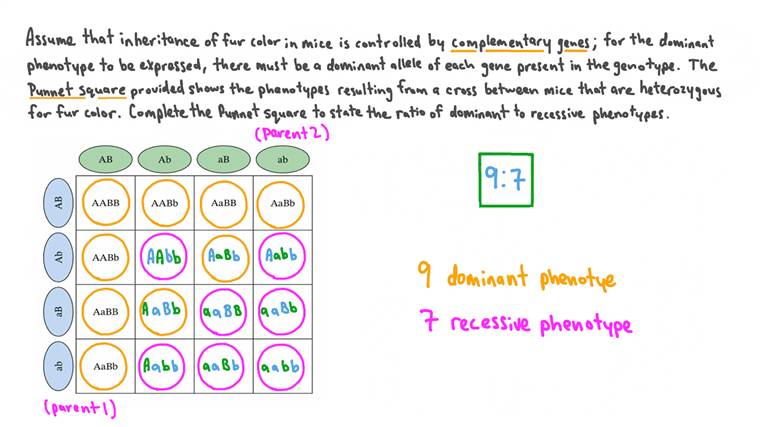 Assume that inheritance of fur color in mice is controlled by complementary genes; for the dominant
phenotype to be expressed, there must be a dominant allele of each gene present in the genotype. The
Punnet Square provided shows the phenotypes resulting from a cross between mice that are heterozygous
for fur color. Complete the Punnet square to state the ratio of dominant to recessive phenotypes.
(parent 2)
AB Ab aB ab
AB AABB AABb AaBB AaBb
Ab AABb AAbb AaBb Aabb
aB AaBB AaBb aaBB aaBb
ab AaBb Aabb aaBb aabb
(parent 1)
9:7
9 dominant phenotye
7 recessive phenotype